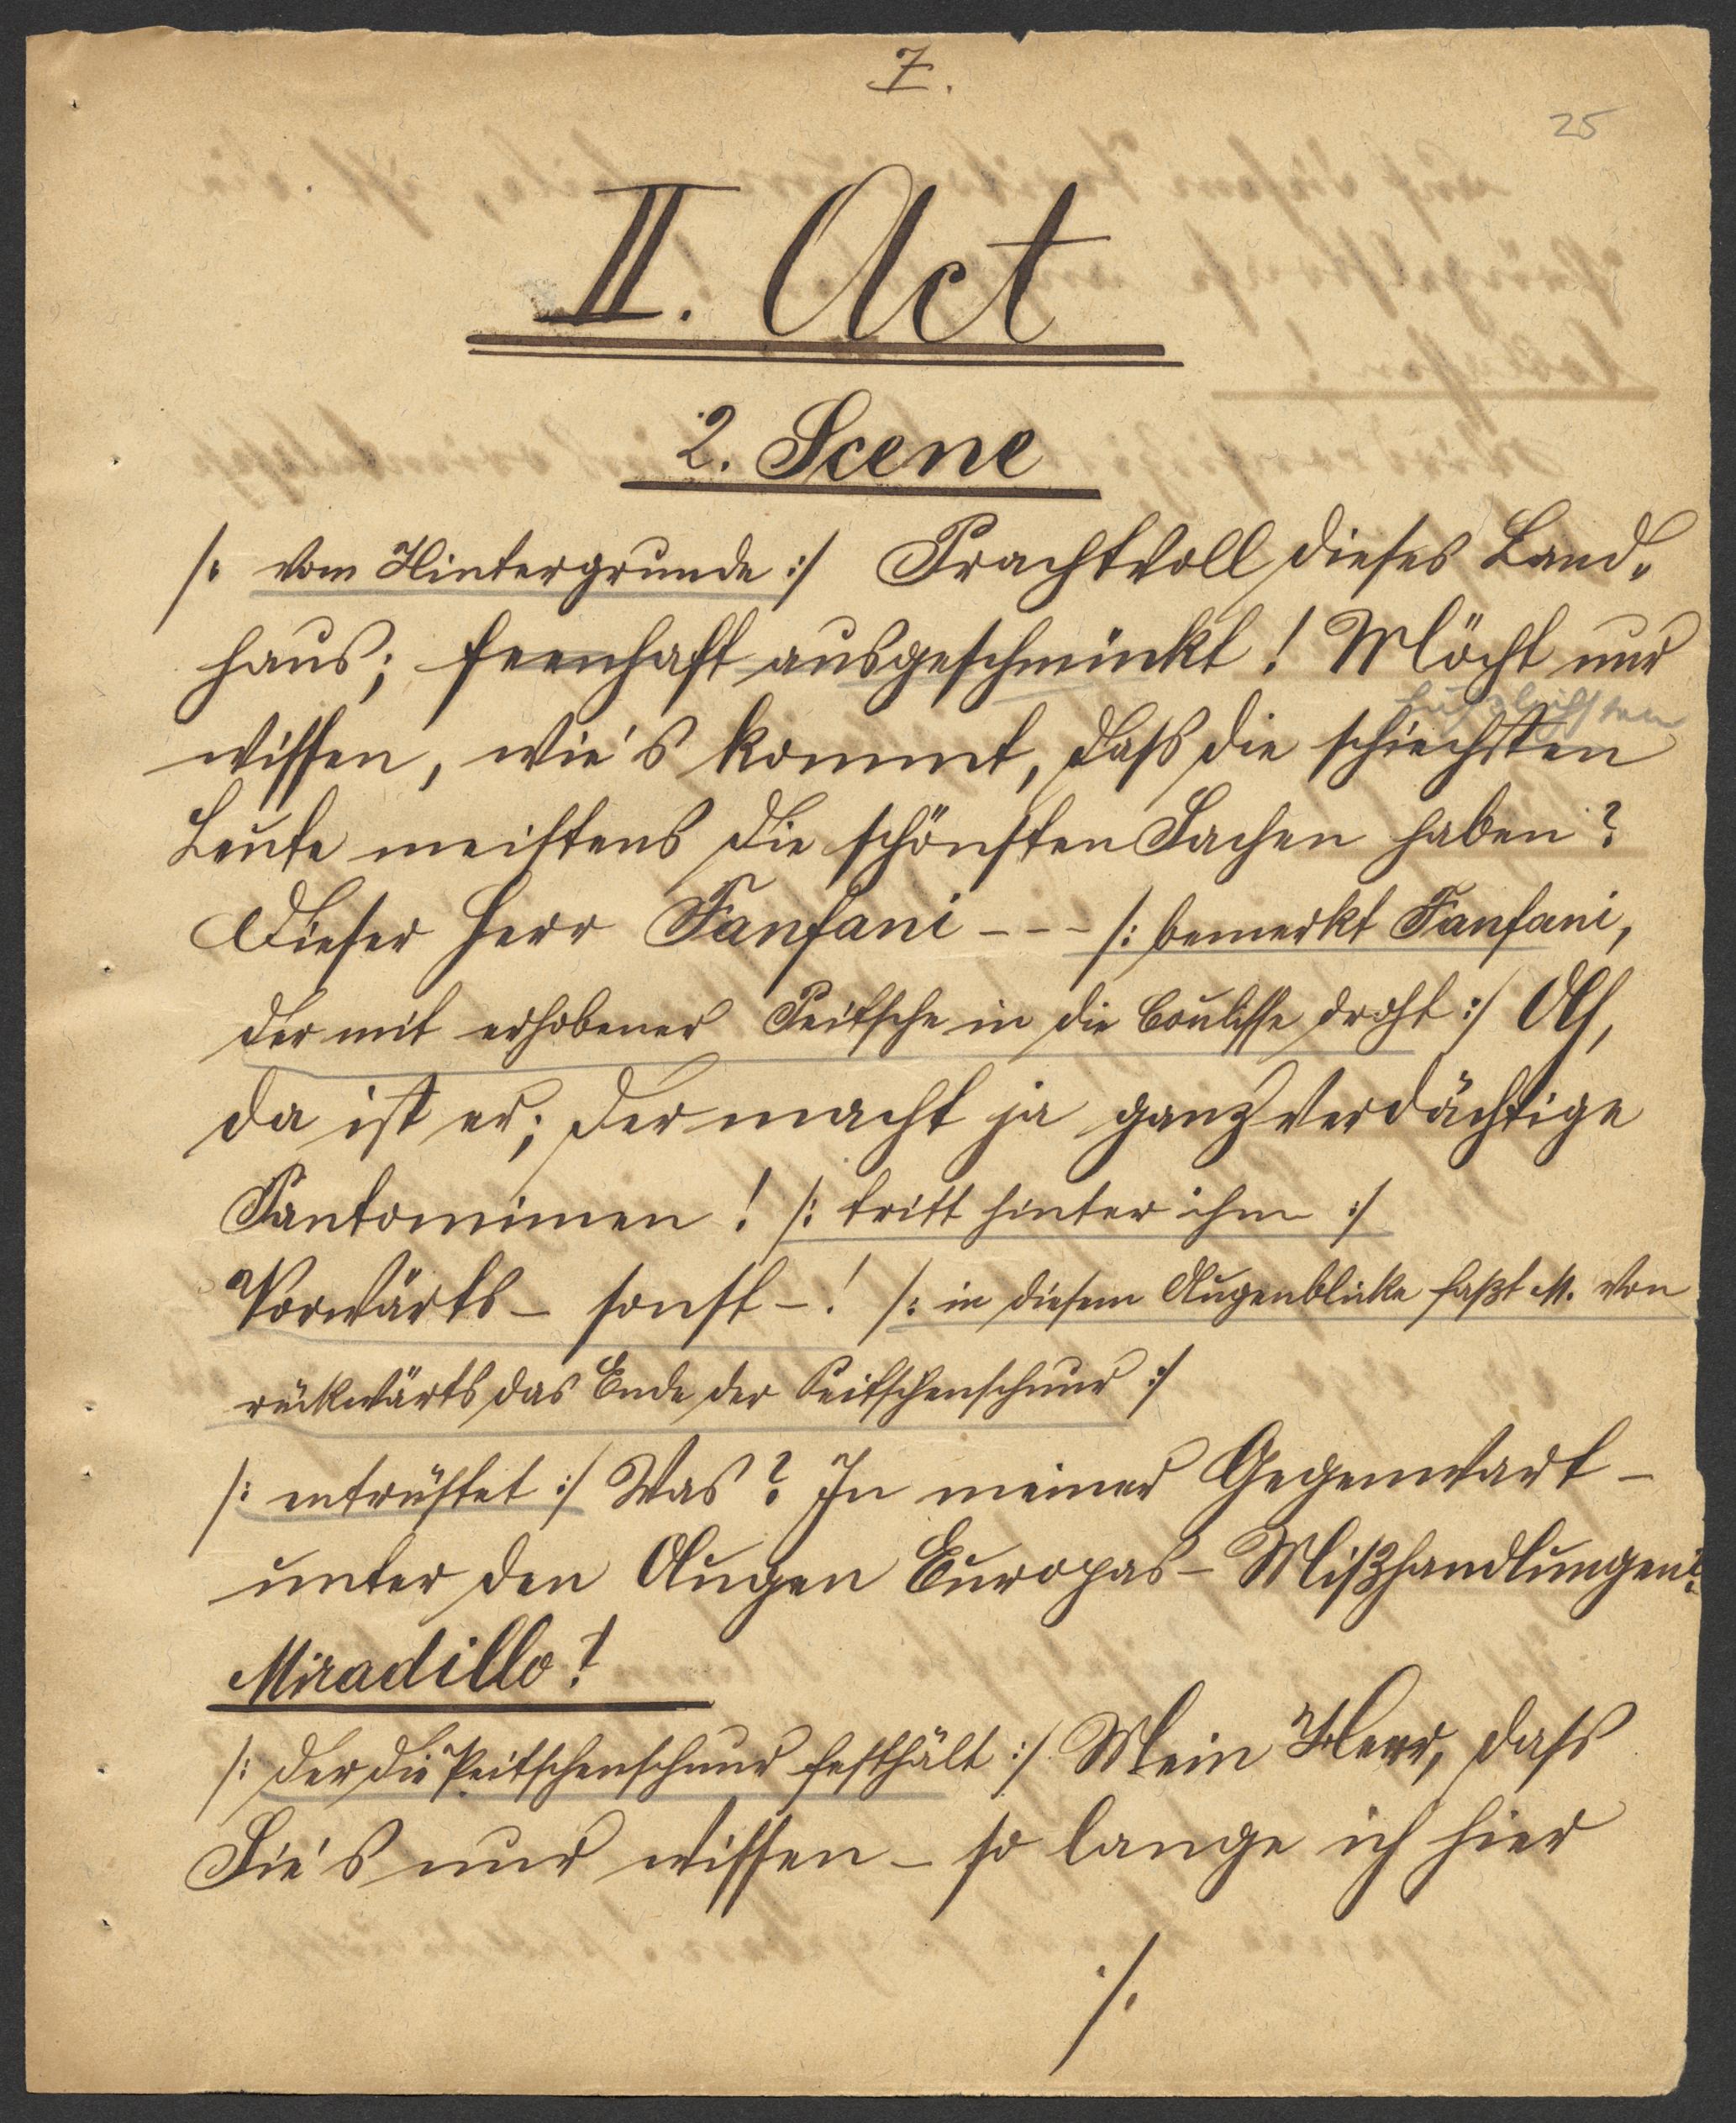 7.
25
II. Act
2. Scene
/: vom Hintergrunde :/ Prachtvoll dieses Land„
haus; feenhaft ausgeschmückt! Möcht nur
häßlichsten
wissen, wie's kommt, daß die schiechsten
Leute meistens die schönsten Sachen haben?
Dieser Herr Fanfani --- /: bemerkt Fanfani,
der mit erhobener Peitsche in die Coulisse droht :/ Ah,
da ist er; der macht ja ganz verdächtige
Pantomimen! /: tritt hinter ihm :/
Vorwärts – sonst –! /: in diesem Augenblicke faßt M. von
rückwärts das Ende der Peitschenschnur :/
/: entrüstet :/ Was? In meiner Gegenwart –
unter den Augen Europas – Mißhandlungen?
Miradillo!
/: der die Peitschenschnur festhält :/ Mein Herr, daß
Sie's nur wissen – so lange ich hier
./.